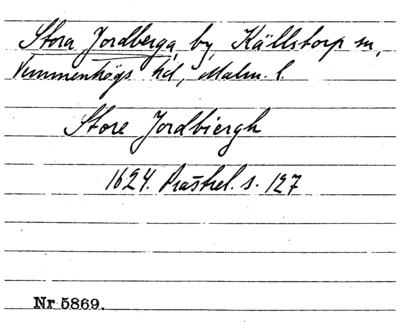 Stora Jordberga, by, Källstorp sn,
Vemmenhögs hd, Malm. l.
Store Jordbiergh
1624. Prästrel. s. 127
Nr 5869.